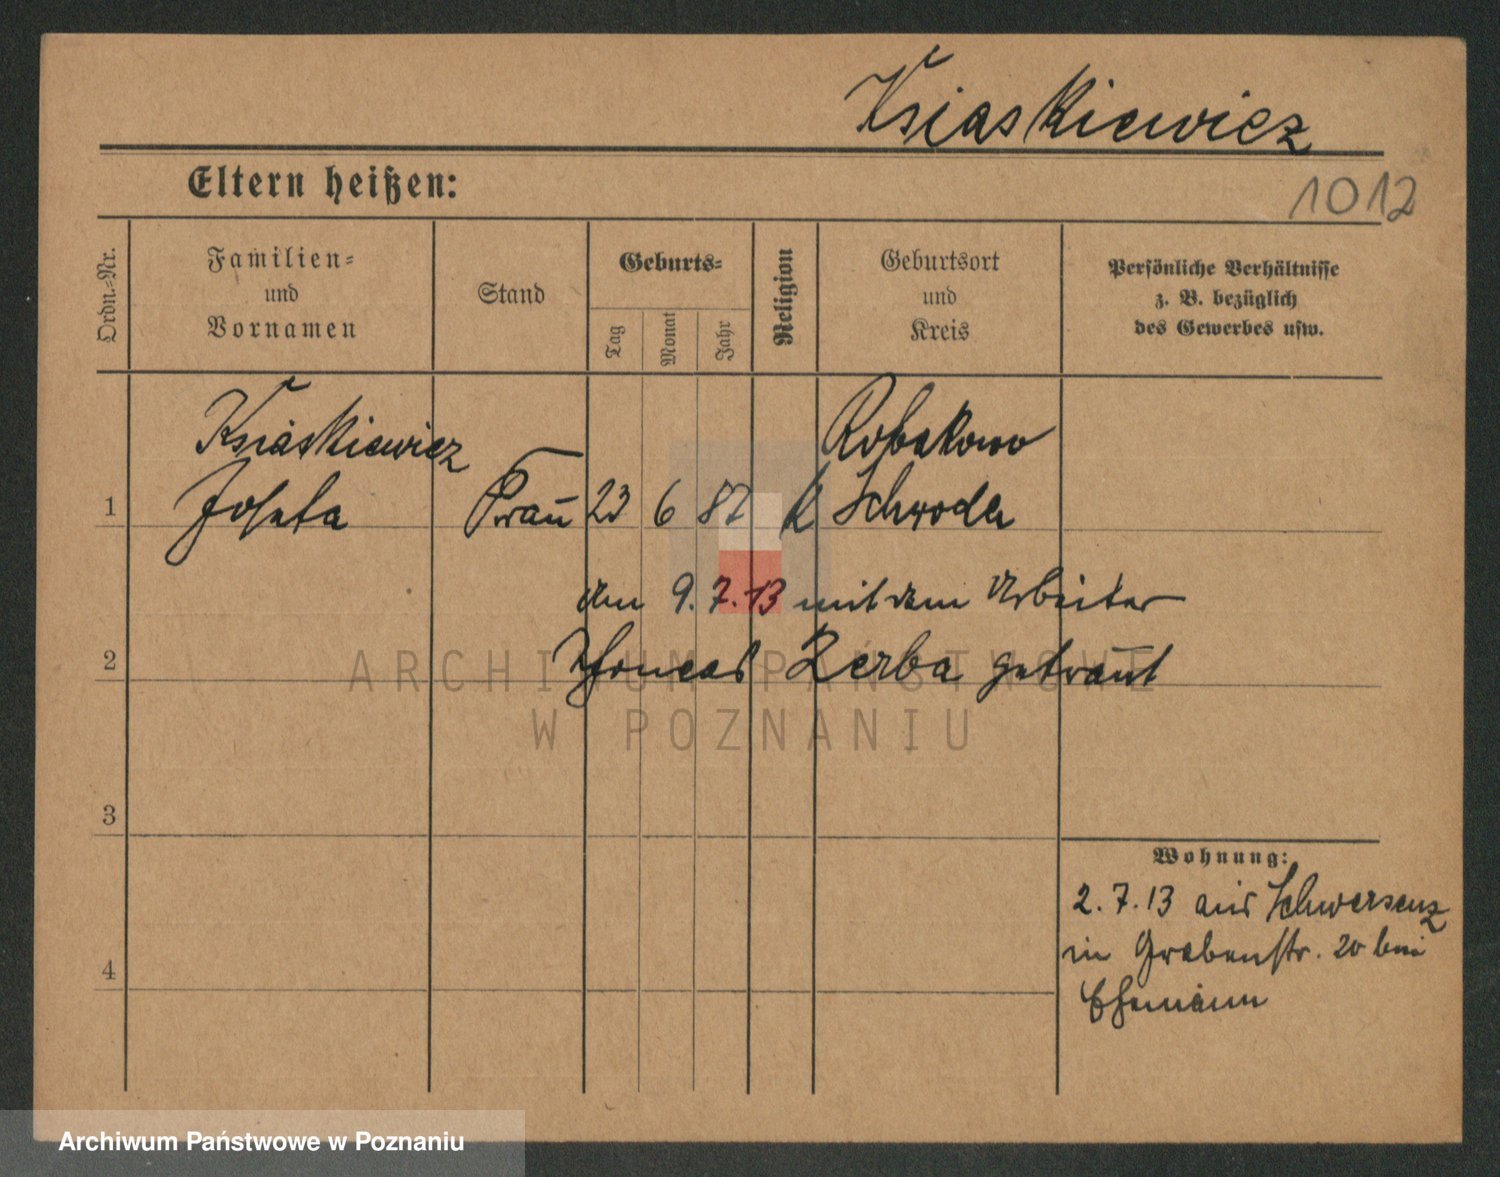 Ksiaskiewicz
Eltern heißen:
1012
Ordn.-Nr.
Familien-
und
Vornamen
Stand
Geburts-
Tag
Monat
Jahr
Religion
Geburtsort
und
Kreis
Persönliche Verhältnisse
z. B. bezüglich
des Gewerbes usw.
Ksiaskiewicz Robakowo
1 Josefa Frau 23 6 87 k Schroda
am 9.7.13 mit dem Arbeiter
2 Zerba getraut
3
Wohnung:
2.7.13 aus Schwersenz
4 in Grabenstr. 20 bei
Ehemann
ARCHIWUM PAŃSTWOWE
W POZNANIU
Archiwum Państwowe w Poznaniu